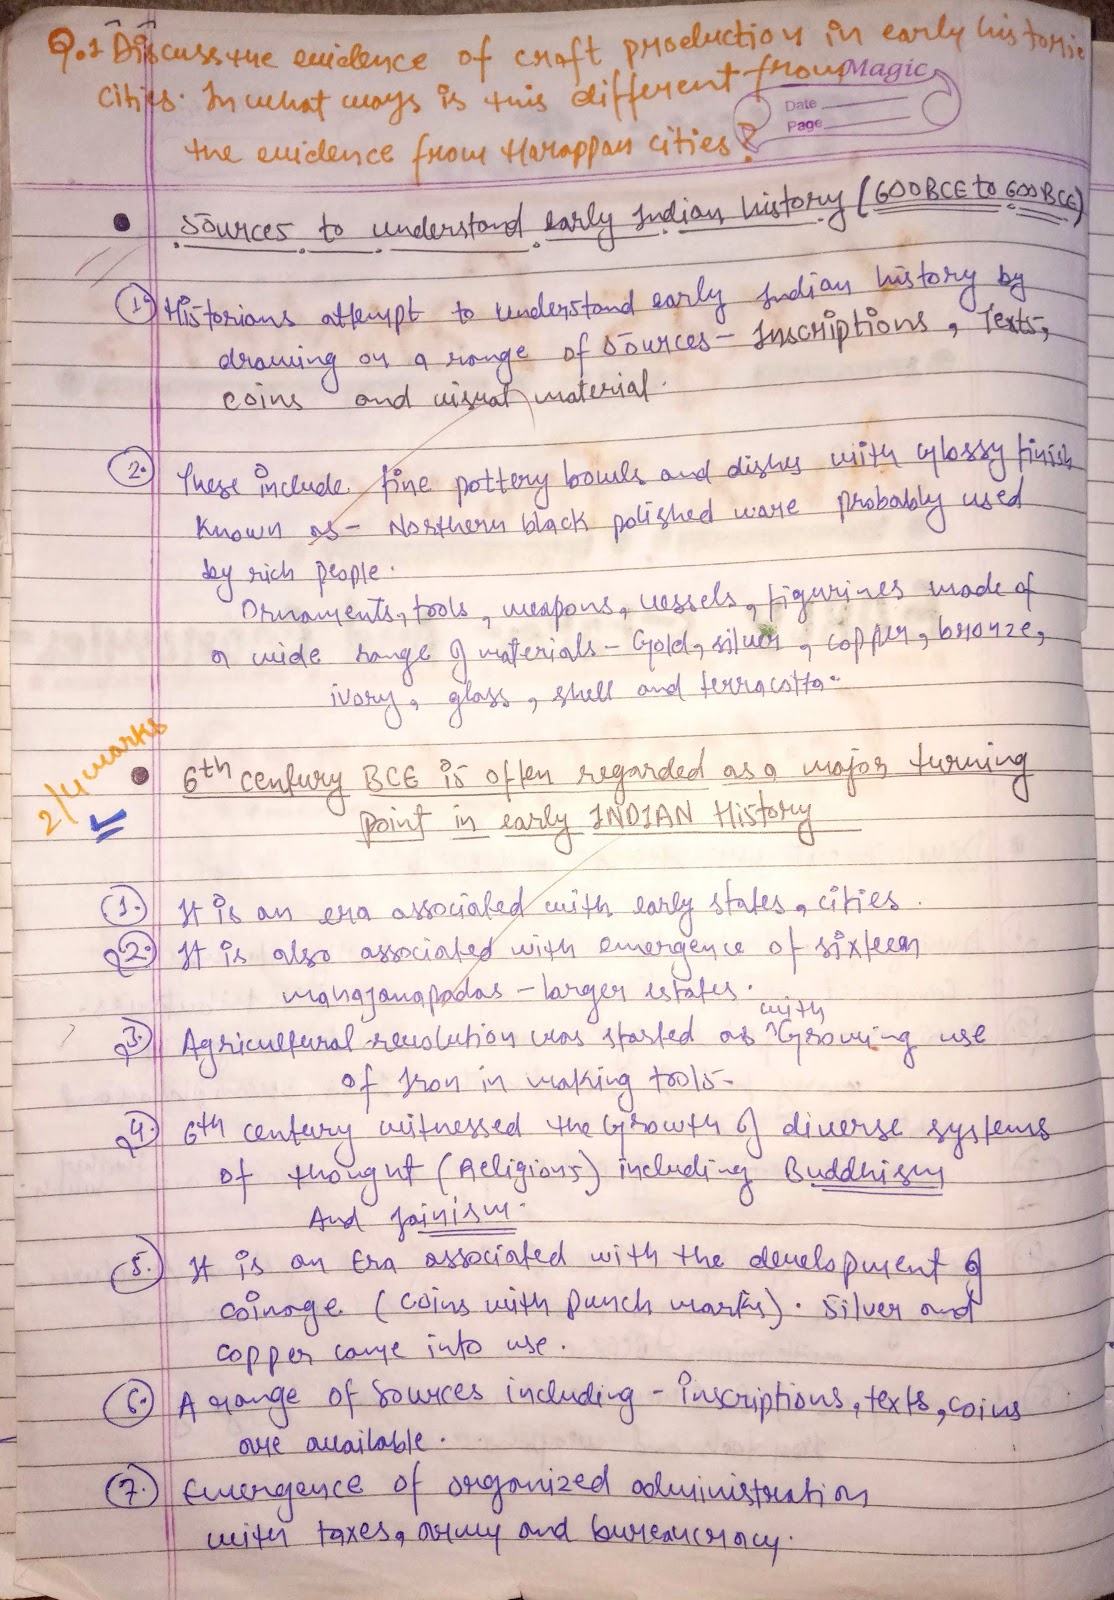 Q.1 Discuss the evidence of craft production in early historic
cities. In what ways is this different from
Magic
Date
Page
the evidence from Harappan cities?
• Sources to understand early Indian history (600BCE to 600BCE)
1. Historians attempt to understand early Indian history by
drawing on a range of sources - Inscriptions, Texts,
coins and visual material.
2. These include fine pottery bowls and dishes with Glossy finish
Known as - Northern black polished ware probably used
by rich people.
Ornaments, tools, weapons, vessels, figurines made of
a wide range of materials - Gold, silver, copper, bronze,
ivory, glass, shell and terracotta.
2/4 marks
• 6th century BCE is often regarded as a major turning
point in early INDIAN History
1. It is an era associated with early states, cities.
2. It is also associated with emergence of sixteen
mahajanapadas - larger estates.
with
3. Agricultural revolution was started as ^ Growing use
of Iron in making tools.
4. 6th century witnessed the Growth of diverse systems
of thought (Religions) including Buddhism
And Jainism.
5. It is an Era associated with the development of
coinage (coins with punch marks). Silver and
copper came into use.
6. A range of sources including - inscriptions, texts, coins
are available.
7. Emergence of organized administration
with taxes, army and bureaucracy.